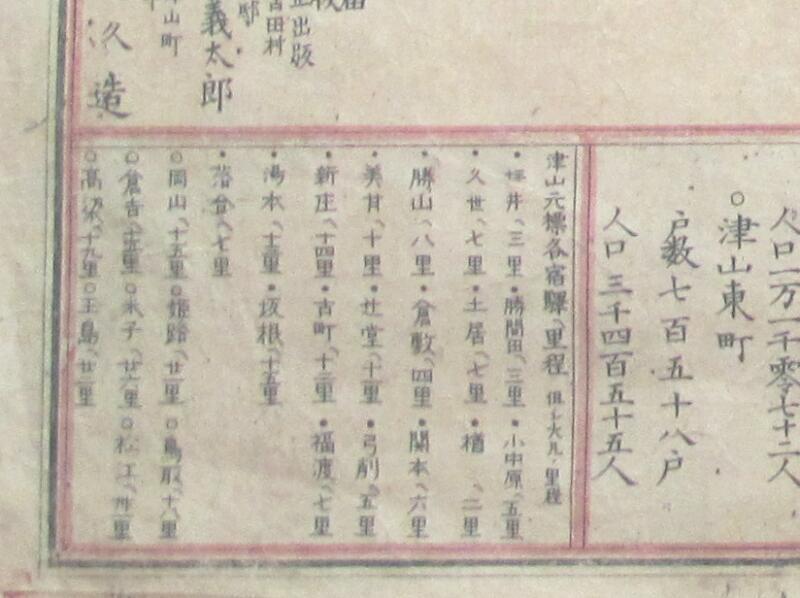 人口一万一千零七十二人
○津山東町
戸数七百五十八戸
人口三千四百五十五人
津山元標各宿驛ヘ里程 但シ大凡ノ里程
•坪井ヘ三里 •勝間田ヘ三里 •小中原ヘ五里
•久世ヘ七里 •土居ヘ七里 •楢ヘ二里
•勝山ヘ八里 •倉敷ヘ四里 •関本ヘ六里
•美甘ヘ十里 •辻堂ヘ十里 •弓削ヘ五里
•新庄ヘ十四里 •古町ヘ十二里 •福渡ヘ七里
•湯本ヘ十三里 •坂根ヘ十五里
•落合ヘ七里
○岡山ヘ十五里 ○姫路ヘ廿一里 ○鳥取ヘ十八里
○倉吉ヘ十五里 ○米子ヘ廿六里 ○松江ヘ卅一里
○高梁ヘ十九里 ○玉島ヘ廿二里
出版
吉田村
邸
義太郎
山町
久造